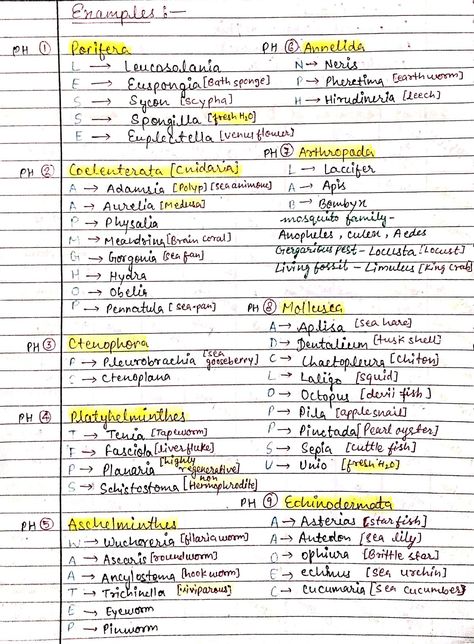 Examples :-
PH ① Porifera
L → Leucosolania
E → Euspongia [Bath sponge]
S → Sycon [scypha]
S → Spongilla [fresh H₂O]
E → Euplectella [venus flower]
PH ② Coelenterata [Cnidaria]
A → Adamsia [Polyp] [sea animous]
A → Aurelia [Medusa]
P → Physalia
M → Meandrina [Brain coral]
G → Gorgonia [sea fan]
H → Hydra
O → Obelia
P → Pennatula [sea-pan]
PH ③ Ctenophora
P → Pleurobrachia [sea gooseberry]
C → Ctenoplana
PH ④ Platyhelminthes
T → Tenia [Tapeworm]
F → Fasciola [liverfluke]
P → Planaria [highly regenerative]
S → Schictostoma [non Hermophrodite]
PH ⑤ Aschelminthes
W → Wuchereria [filaria worm]
A → Ascaris [roundworm]
A → Ancylostoma [hook worm]
T → Trichinella [viviparous]
E → Eyeworm
P → Pinworm
PH ⑥ Annelida
N → Neris
P → Pheretima [earth worm]
H → Hirudineria [leech]
PH ⑦ Arthropada
L → Laccifer
A → Apis
B → Bombyx
mosquito family-
Anopheles, culex, Aedes
Gergarious pest - Locusta [Locust]
Living fossil - Limulus [King crab]
PH ⑧ Mollusca
A → Aplisa [sea hare]
D → Dentalium [tusk shell]
C → Chaetopleura [chiton]
L → Laligo [squid]
O → Octopus [devil fish]
P → Pila [apple snail]
P → Pinctada [Pearl oyster]
S → Sepia [cuttle fish]
U → Unio [fresh H₂O]
PH ⑨ Echinodermata
A → Asterias [star fish]
A → Antedon [sea lily]
O → ophiura [Brittle star]
E → echinus [sea urchin]
C → cucumaria [sea cucumber]